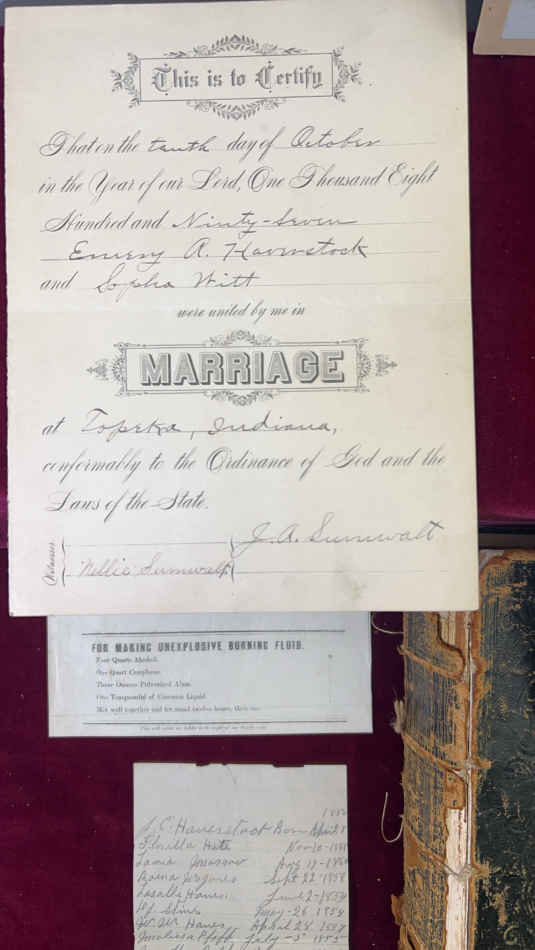 This is to Certify
That on the tenth day of October
in the Year of our Lord, One Thousand Eight
Hundred and Ninty-Seven
Emery A. Haverstock
and Sopha Witt
were united by me in
MARRIAGE
at Topeka, Indiana,
conformably to the Ordinance of God and the
Laws of the State.
J. A. Sumwalt
Witnesses
Nellie Sumwalt
FOR MAKING UNEXPLOSIVE BURNING FLUID.
Four Quarts Alcohol.
One Quart Camphene.
Three Ounces Pulverized Alum.
One Teaspoonful of Curcuma Liquid.
Mix well together and let stand twelve hours, then use.
J. C. Haverstock Born April
Nov 10
Aug 19
Sept 22
June 2
May - 26
April 24
July - 3